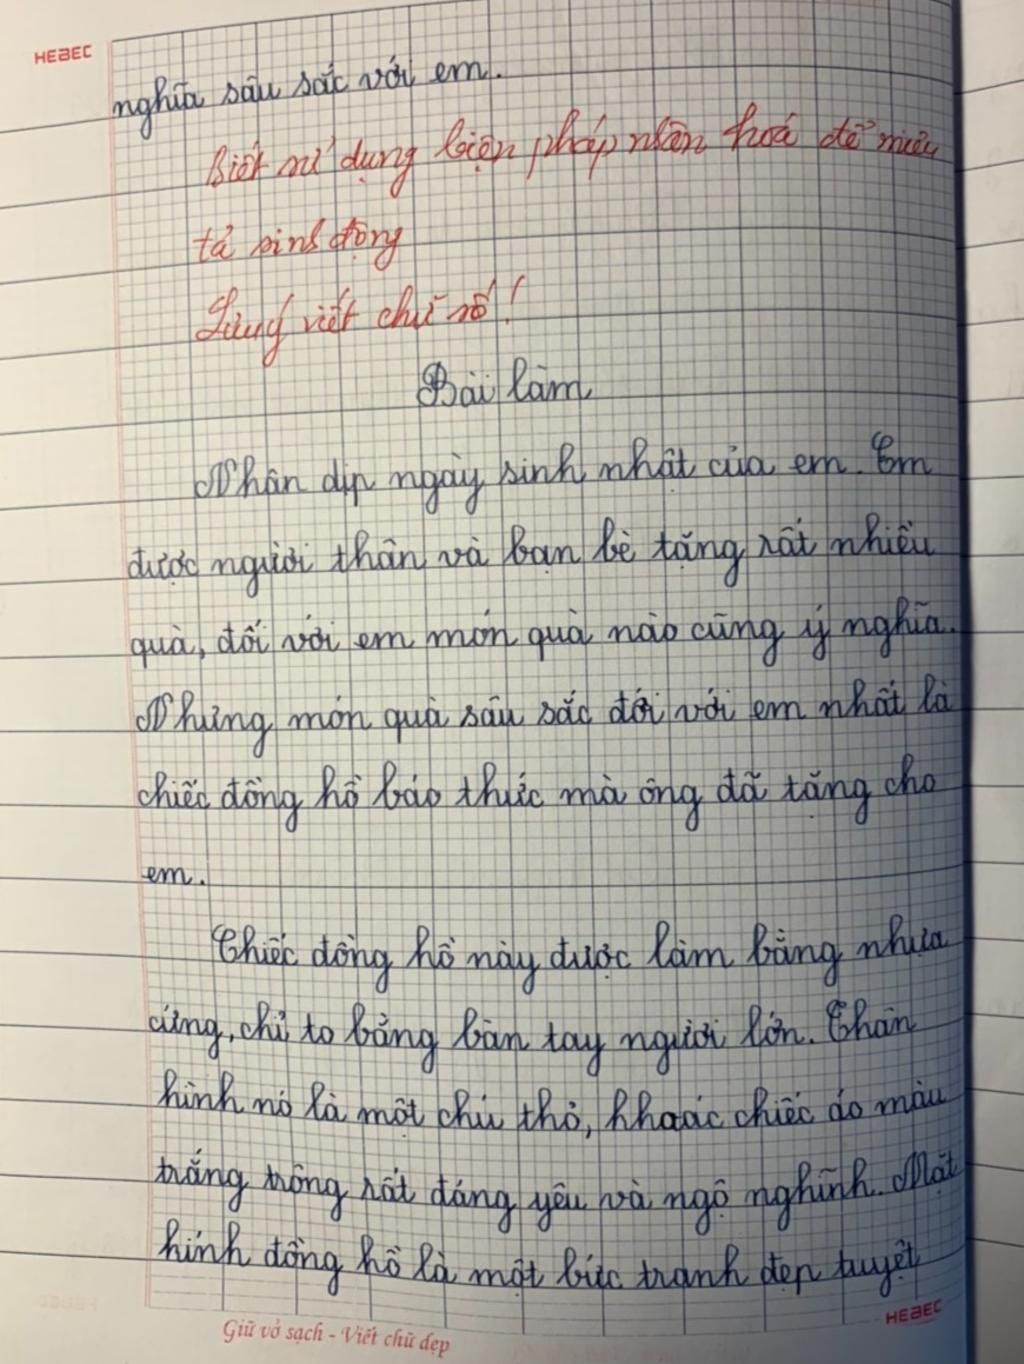 HEBEC
nghĩa sâu sắc với em.
Biết sử dụng biện pháp nhân hoá để miêu
tả sinh động
Lưu ý viết chữ số!
Bài làm
Nhân dịp ngày sinh nhật của em. Em
được người thân và bạn bè tặng rất nhiều
quà, đối với em món quà nào cũng ý nghĩa.
Nhưng món quà sâu sắc đối với em nhất là
chiếc đồng hồ báo thức mà ông đã tặng cho
em.
Chiếc đồng hồ này được làm bằng nhựa
cứng, chỉ to bằng bàn tay người lớn. Thân
hình nó là một chú thỏ, khoác chiếc áo màu
trắng trông rất đáng yêu và ngộ nghĩnh. Mặt
kính đồng hồ là một bức tranh đẹp tuyệt
HEBEC
Giữ vở sạch - Viết chữ đẹp